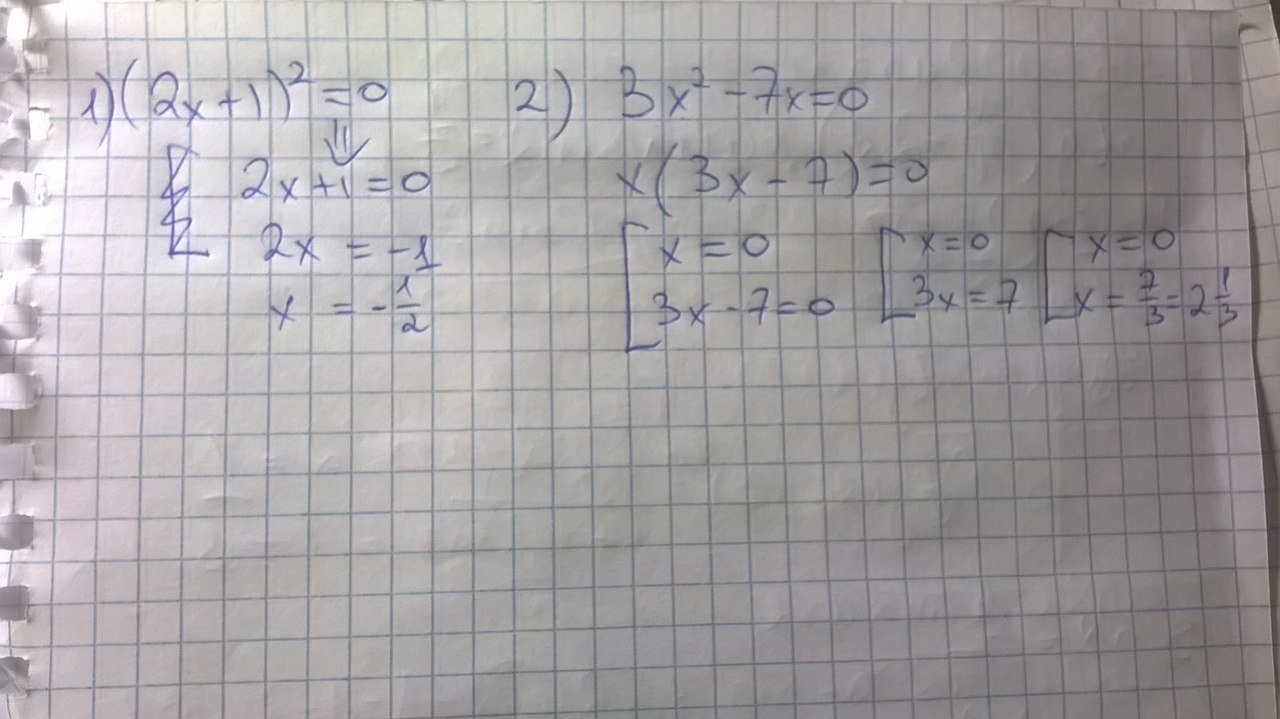 1) (2x+1)² = 0
⇓
2x+1 = 0
2x = -1
x = -1/2
2) 3x² - 7x = 0
x(3x - 7) = 0
[ x = 0
3x - 7 = 0
[ x = 0
3x = 7
[ x = 0
x = 7/3 = 2 1/3